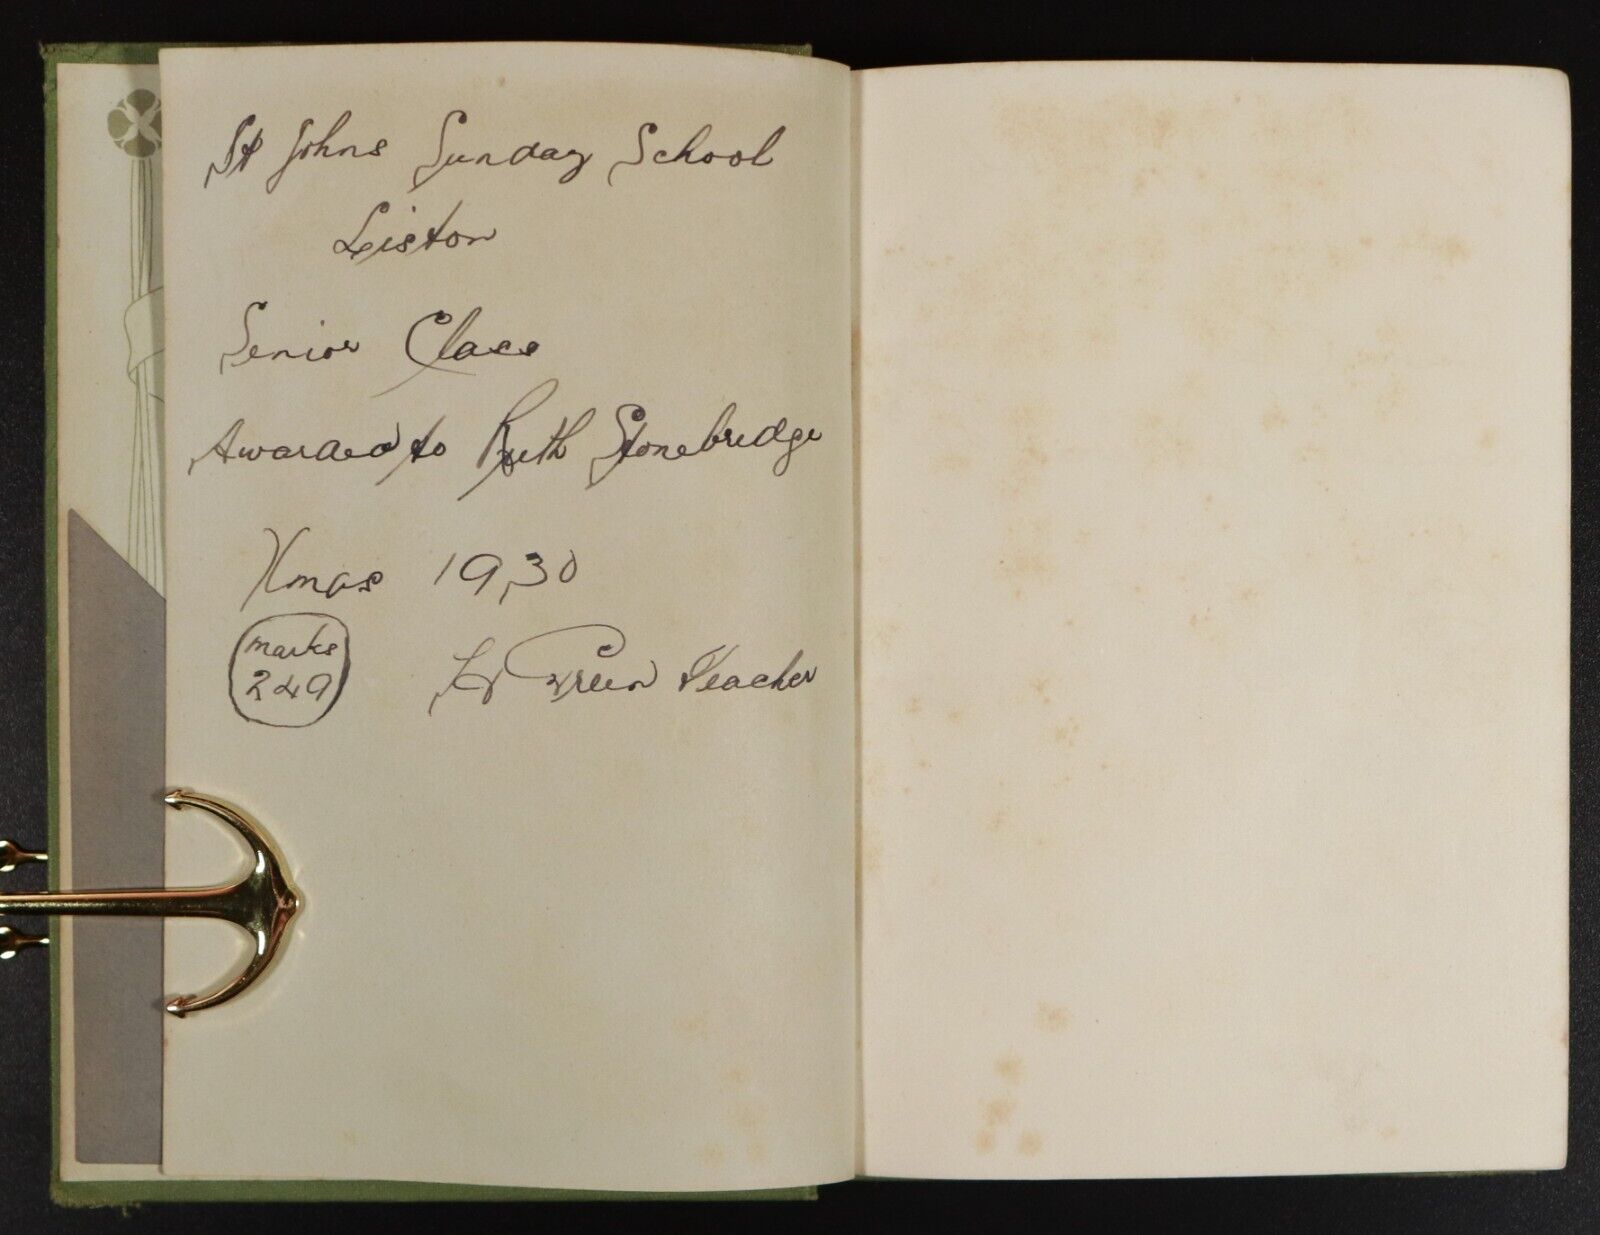 St Johns Sunday School
Liston
Senior Class
Awarded to Ruth Stonebridge
Xmas 19,30
marks
249
Green Teacher